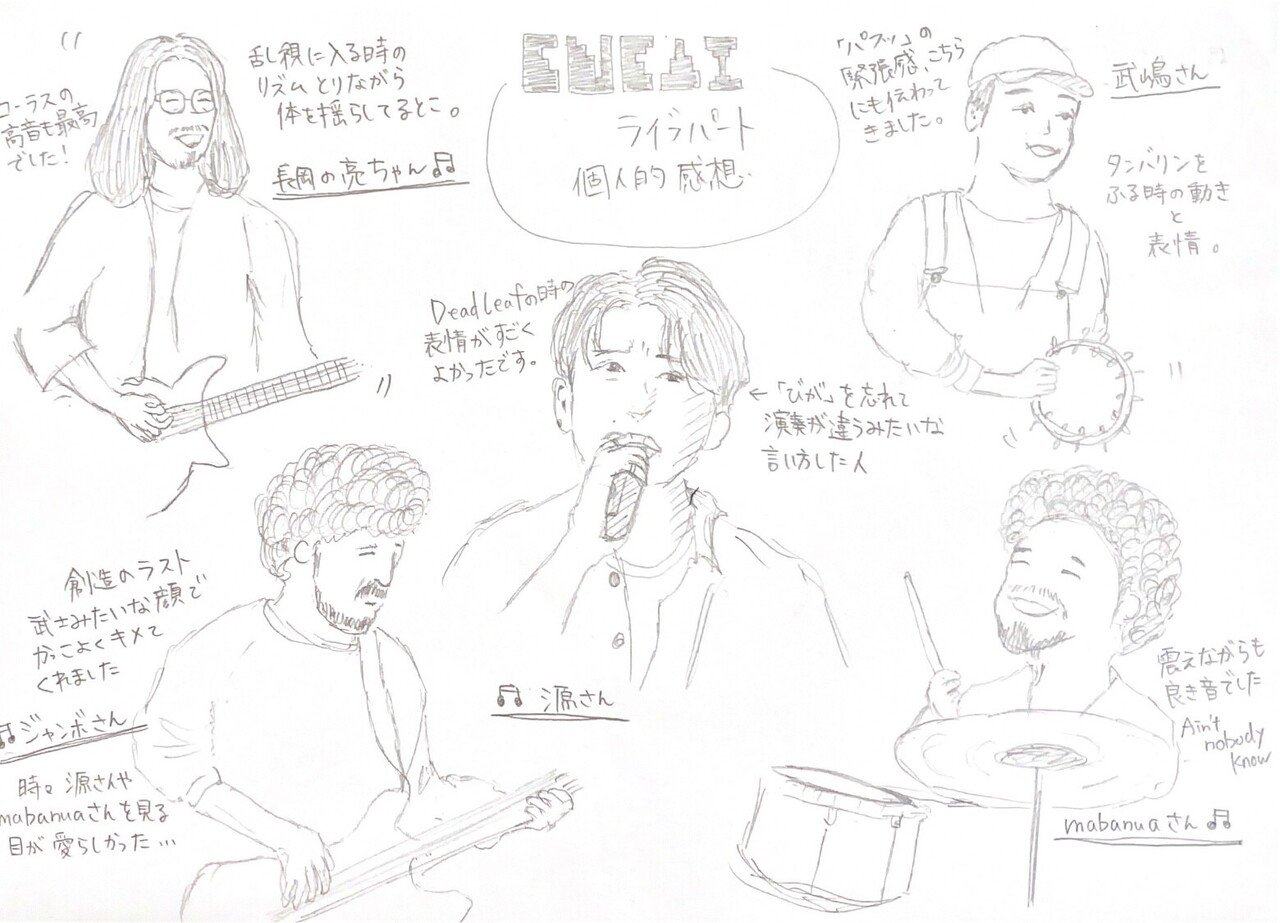 ライブパート
個人的感想
コーラスの
高音も最高
でした!
乱視に入る時の
リズムとりながら
体を揺らしてるとこ。
長岡の亮ちゃん♫
「パスッ」の
緊張感、こちら
にも伝わって
きました。
武嶋さん
タンバリンを
ふる時の動き
と
表情。
Dead Leafの時の
表情がすごく
よかったです。
←「びが」を忘れて
演奏が違うみたいな
言い方した人
♫ 源さん
創造のラスト
武士みたいな顔で
かっこよくキメて
くれました
♫ジャンボさん
時々源さんや
mabanuaさんを見る
目が愛らしかった…
震えながらも
良き音でした
Ain't
nobody
know
mabanuaさん♫